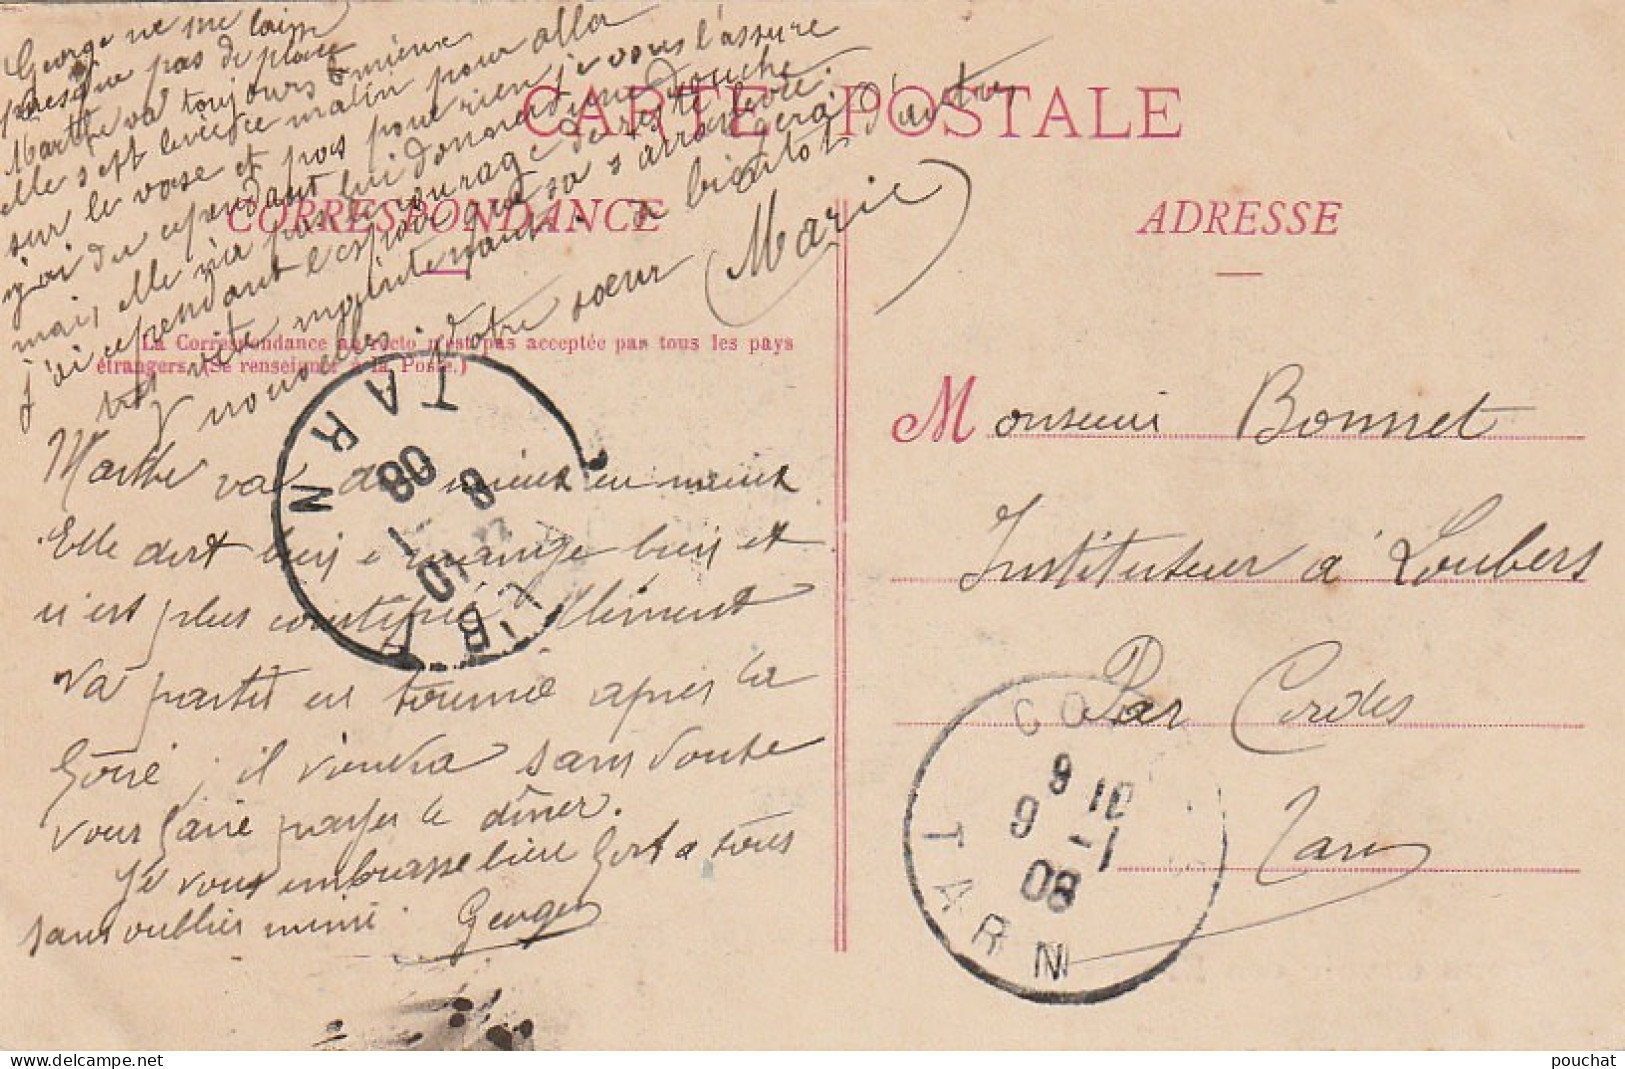 George ne me laisse
presque pas de place
Marthe va toujours de mieux
elle s'est levée ce matin pour aller
sur le vase et pas pour rien je vous l'assure
j'ai du cependant lui donner une douche
mais elle n'a pas le courage de reste
j'ai cependant l'espoir que sa s'arrangera
très vite maintenant. A bientot d'autres
nouvelles. Votre sœur Marie
CARTE POSTALE
CORRESPONDANCE
La Correspondance au recto n'est pas acceptée par tous les pays
étrangers. (Se renseigner à la Poste.)
Marthe va de mieux en mieux
Elle dort bien et mange bien et
n'est plus constipée. Clément
va partir en tournée après la
foire, il viendra sans doute
vous faire payer le dîner.
Je vous embrasse bien fort a tous
sans oublier mimi. Georges
ALBI
TARN
8
10 -1
08
ADRESSE
Monsieur Bonnet
Instituteur à Loubers
Par Cordes
Tarn
CORDES
9 10
9 -1
08
TARN
pouchat